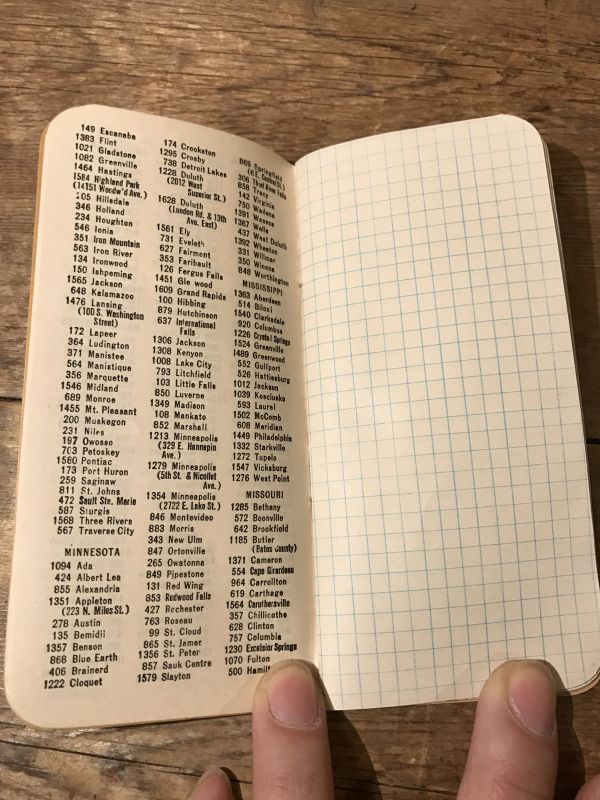 149 Escanaba
1383 Flint
1021 Gladstone
1082 Greenville
1464 Hastings
1584 Highland Park
(14151 Woodw'd Ave.)
205 Hillsdale
346 Holland
234 Houghton
546 Ionia
351 Iron Mountain
563 Iron River
134 Ironwood
150 Ishpeming
1565 Jackson
648 Kalamazoo
1476 Lansing
(100 S. Washington
Street)
172 Lapeer
364 Ludington
371 Manistee
564 Manistique
356 Marquette
1546 Midland
689 Monroe
1455 Mt. Pleasant
200 Muskegon
231 Niles
197 Owosso
703 Petoskey
1580 Pontiac
173 Port Huron
259 Saginaw
811 St. Johns
472 Sault Ste. Marie
587 Sturgis
1568 Three Rivers
567 Traverse City
MINNESOTA
1094 Ada
424 Albert Lea
855 Alexandria
1351 Appleton
(223 N. Miles St.)
278 Austin
135 Bemidji
1357 Benson
868 Blue Earth
406 Brainerd
1222 Cloquet
174 Crookston
1295 Crosby
738 Detroit Lakes
1228 Duluth
(2012 West
Superior St.)
1628 Duluth
(London Rd. & 13th
Ave. East)
1561 Ely
731 Eveleth
627 Fairmont
353 Faribault
126 Fergus Falls
1451 Glenwood
1609 Grand Rapids
100 Hibbing
879 Hutchinson
637 International
Falls
1306 Jackson
1308 Kenyon
1008 Lake City
793 Litchfield
103 Little Falls
850 Luverne
1349 Madison
108 Mankato
852 Marshall
1213 Minneapolis
(329 E. Hennepin
Ave.)
1279 Minneapolis
(5th St. & Nicollet
Ave.)
1354 Minneapolis
(2722 E. Lake St.)
846 Montevideo
883 Morris
343 New Ulm
847 Ortonville
265 Owatonna
849 Pipestone
131 Red Wing
853 Redwood Falls
427 Rochester
763 Roseau
99 St. Cloud
865 St. James
1356 St. Peter
857 Sauk Centre
1579 Slayton
869 Springfield
306 Thief River Falls
858 Tracy
142 Virginia
750 Wadena
1391 Waseca
1367 Wells
437 West Duluth
1392 Wheaton
331 Willmar
350 Winona
848 Worthington
MISSISSIPPI
1363 Aberdeen
514 Biloxi
1540 Clarksdale
920 Columbus
1226 Crystal Springs
1524 Greenville
1489 Greenwood
552 Gulfport
526 Hattiesburg
1012 Jackson
1039 Kosciusko
593 Laurel
1502 McComb
608 Meridian
1449 Philadelphia
1332 Starkville
1272 Tupelo
1547 Vicksburg
1276 West Point
MISSOURI
1285 Bethany
572 Boonville
642 Brookfield
1185 Butler
(Bates County)
1371 Cameron
554 Cape Girardeau
964 Carrollton
619 Carthage
1564 Caruthersville
357 Chillicothe
628 Clinton
757 Columbia
1230 Excelsior Springs
1070 Fulton
500 Hamil